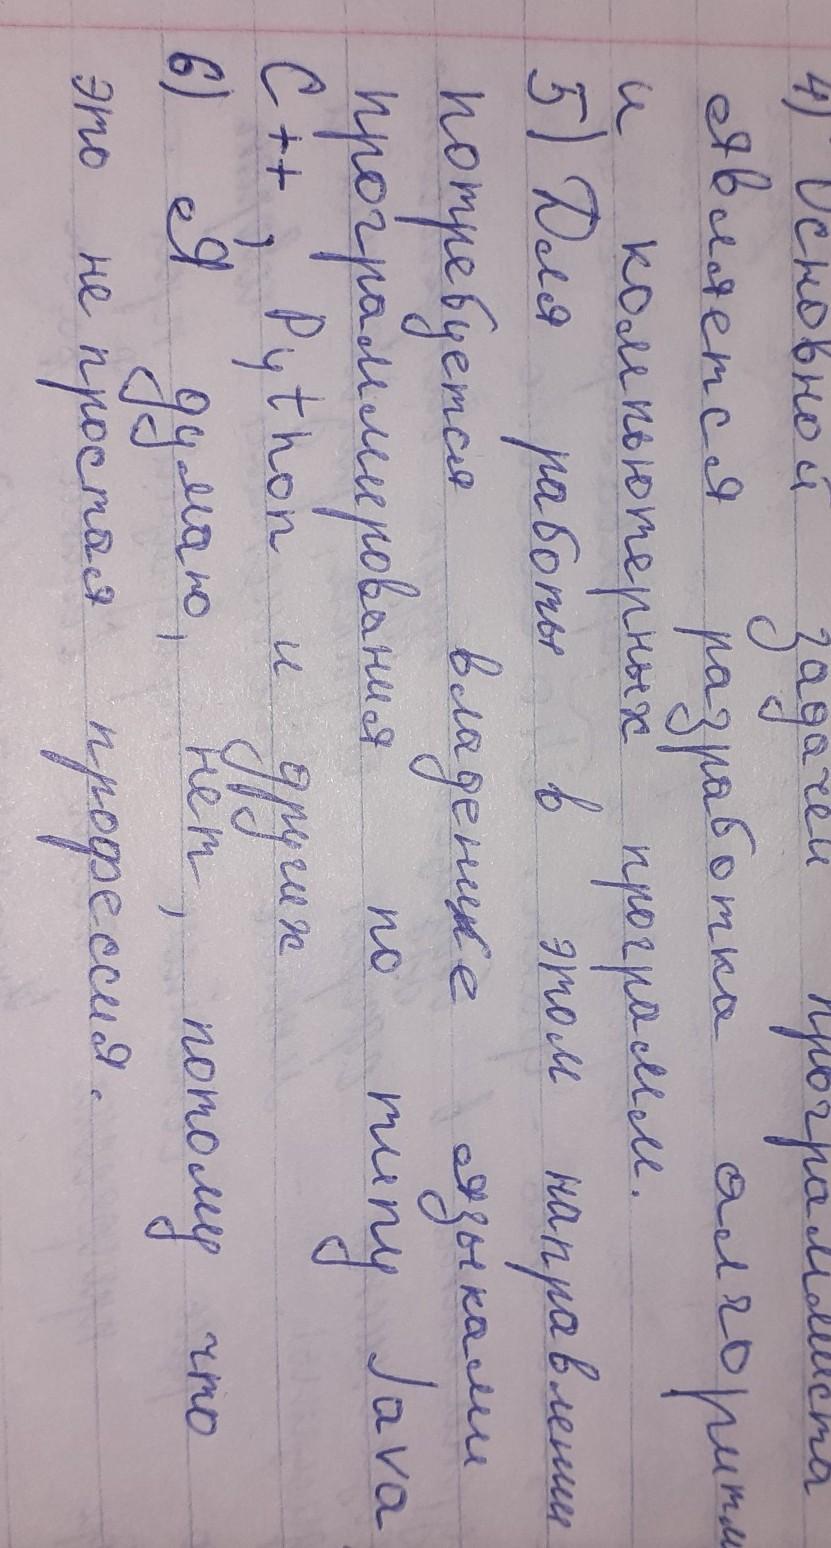 4) Основной задачей программиста
является разработка алгоритм
и компьютерных программ.
5) Для работы в этом направлении
потребуется владение языками
программирования по типу Java
C++, Python и других
6) Я думаю, нет, потому что
это не простая профессия.